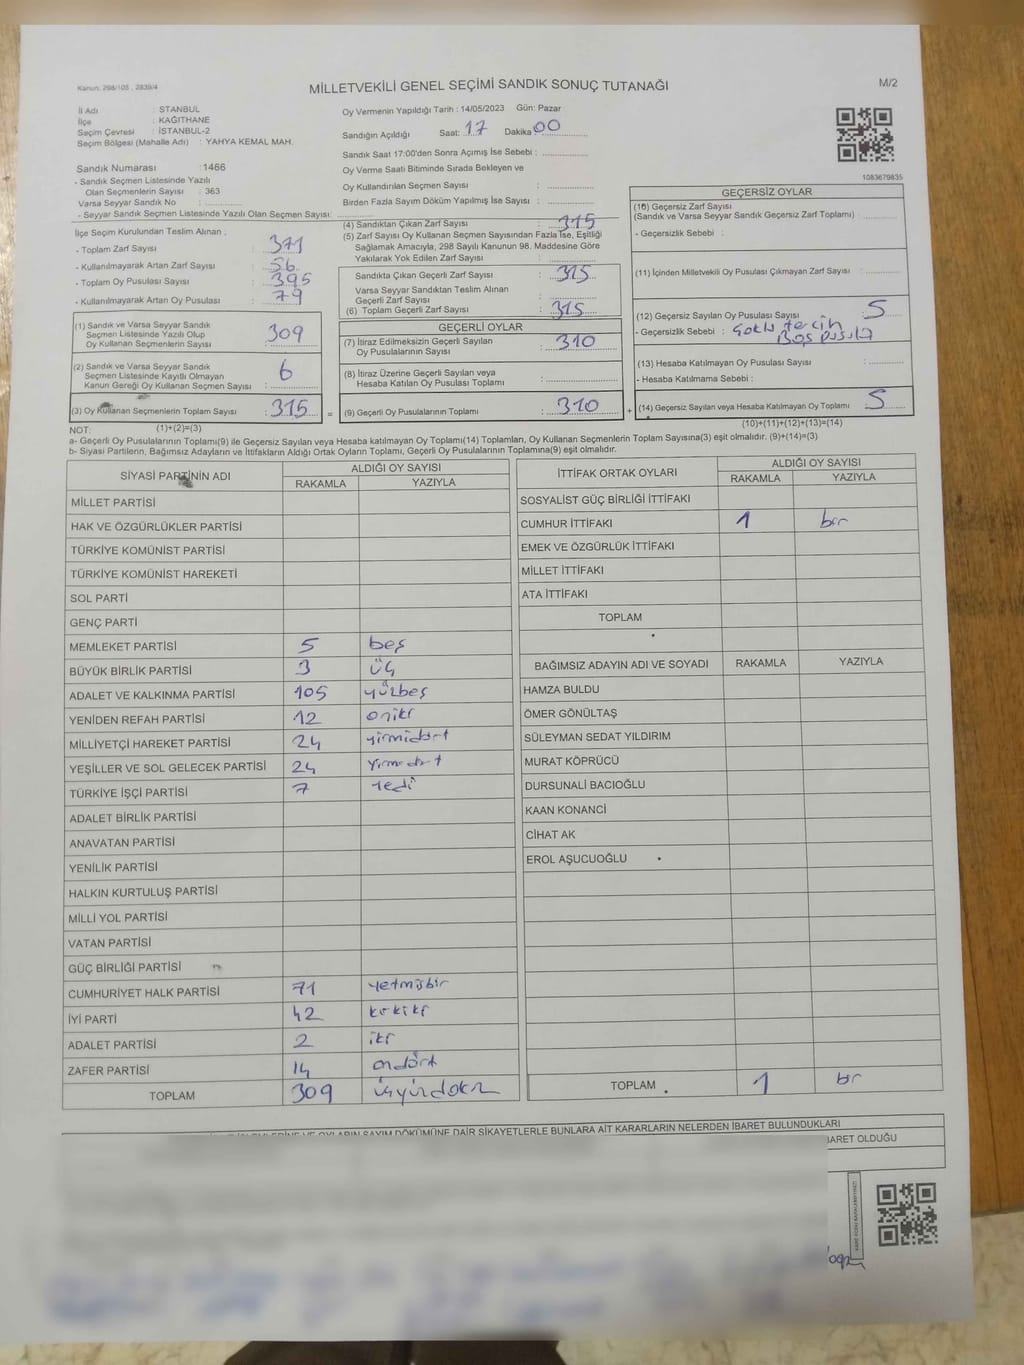 Kanun: 298/105 , 2839/4
MİLLETVEKİLİ GENEL SEÇİMİ SANDIK SONUÇ TUTANAĞI
M/2
İl Adı : STANBUL
İlçe : KAĞITHANE
Seçim Çevresi : İSTANBUL-2
Seçim Bölgesi (Mahalle Adı) : YAHYA KEMAL MAH.
Sandık Numarası :1466
- Sandık Seçmen Listesinde Yazılı
Olan Seçmenlerin Sayısı : 363
Varsa Seyyar Sandık No :
- Seyyar Sandık Seçmen Listesinde Yazılı Olan Seçmen Sayısı:
Oy Vermenin Yapıldığı Tarih : 14/05/2023 Gün: Pazar
Sandığın Açıldığı Saat: 17 Dakika 00
Sandık Saat 17:00'den Sonra Açımış İse Sebebi :
Oy Verme Saati Bitiminde Sırada Bekleyen ve
Oy Kullandırılan Seçmen Sayısı :
Birden Fazla Sayım Döküm Yapılmış İse Sayısı :
1083679835
İlçe Seçim Kurulundan Teslim Alınan :
- Toplam Zarf Sayısı : 371
- Kullanılmayarak Artan Zarf Sayısı : 56
- Toplam Oy Pusulası Sayısı : 395
- Kullanılmayarak Artan Oy Pusulası : 79
(1) Sandık ve Varsa Seyyar Sandık
Seçmen Listesinde Yazılı Olup
Oy Kullanan Seçmenlerin Sayısı : 309
(2) Sandık ve Varsa Seyyar Sandık
Seçmen Listesinde Kayıtlı Olmayan
Kanun Gereği Oy Kullanan Seçmen Sayısı : 6
(3) Oy Kullanan Seçmenlerin Toplam Sayısı : 315 =
(4) Sandıktan Çıkan Zarf Sayısı : 315
(5) Zarf Sayısı Oy Kullanan Seçmen Sayısından Fazla İse, Eşitliği
Sağlamak Amacıyla, 298 Sayılı Kanunun 98. Maddesine Göre
Yakılarak Yok Edilen Zarf Sayısı :
Sandıkta Çıkan Geçerli Zarf Sayısı : 315
Varsa Seyyar Sandıktan Teslim Alınan
Geçerli Zarf Sayısı :
(6) Toplam Geçerli Zarf Sayısı : 315
GEÇERLİ OYLAR
(7) İtiraz Edilmeksizin Geçerli Sayılan
Oy Pusulalarının Sayısı : 310
(8) İtiraz Üzerine Geçerli Sayılan veya
Hesaba Katılan Oy Pusulası Toplamı :
(9) Geçerli Oy Pusulalarının Toplamı : 310 +
GEÇERSİZ OYLAR
(10) Geçersiz Zarf Sayısı
(Sandık ve Varsa Seyyar Sandık Geçersiz Zarf Toplamı) :
- Geçersizlik Sebebi :
(11) İçinden Milletvekili Oy Pusulası Çıkmayan Zarf Sayısı :
(12) Geçersiz Sayılan Oy Pusulası Sayısı : 5
- Geçersizlik Sebebi : çoklu tercih
Boş pusula
(13) Hesaba Katılmayan Oy Pusulası Sayısı :
- Hesaba Katılmama Sebebi :
(14) Geçersiz Sayılan veya Hesaba Katılmayan Oy Toplamı : 5
NOT: (1)+(2)=(3)
(10)+(11)+(12)+(13)=(14)
a- Geçerli Oy Pusulalarının Toplamı(9) ile Geçersiz Sayılan veya Hesaba katılmayan Oy Toplamı(14) Toplamları, Oy Kullanan Seçmenlerin Toplam Sayısına(3) eşit olmalıdır. (9)+(14)=(3)
b- Siyasi Partilerin, Bağımsız Adayların ve İttifakların Aldığı Ortak Oyların Toplamı, Geçerli Oy Pusulalarının Toplamına(9) eşit olmalıdır.
SİYASİ PARTİNİN ADI ALDIĞI OY SAYISI
RAKAMLA YAZIYLA
MİLLET PARTİSİ
HAK VE ÖZGÜRLÜKLER PARTİSİ
TÜRKİYE KOMÜNİST PARTİSİ
TÜRKİYE KOMÜNİST HAREKETİ
SOL PARTİ
GENÇ PARTİ
MEMLEKET PARTİSİ 5 beş
BÜYÜK BİRLİK PARTİSİ 3 üç
ADALET VE KALKINMA PARTİSİ 105 yüzbeş
YENİDEN REFAH PARTİSİ 12 oniki
MİLLİYETÇİ HAREKET PARTİSİ 24 yirmidört
YEŞİLLER VE SOL GELECEK PARTİSİ 24 yirmidört
TÜRKİYE İŞÇİ PARTİSİ 7 yedi
ADALET BİRLİK PARTİSİ
ANAVATAN PARTİSİ
YENİLİK PARTİSİ
HALKIN KURTULUŞ PARTİSİ
MİLLİ YOL PARTİSİ
VATAN PARTİSİ
GÜÇ BİRLİĞİ PARTİSİ
CUMHURİYET HALK PARTİSİ 71 yetmişbir
İYİ PARTİ 42 kırkiki
ADALET PARTİSİ 2 iki
ZAFER PARTİSİ 14 ondört
TOPLAM 309 üçyüzdokuz
İTTİFAK ORTAK OYLARI ALDIĞI OY SAYISI
RAKAMLA YAZIYLA
SOSYALİST GÜÇ BİRLİĞİ İTTİFAKI
CUMHUR İTTİFAKI 1 bir
EMEK VE ÖZGÜRLÜK İTTİFAKI
MİLLET İTTİFAKI
ATA İTTİFAKI
TOPLAM
BAĞIMSIZ ADAYIN ADI VE SOYADI RAKAMLA YAZIYLA
HAMZA BULDU
ÖMER GÖNÜLTAŞ
SÜLEYMAN SEDAT YILDIRIM
MURAT KÖPRÜCÜ
DURSUNALİ BACIOĞLU
KAAN KONANCİ
CİHAT AK
EROL AŞUCUOĞLU
TOPLAM 1 bir
OYLARIN SAYIM DÖKÜMÜNE DAİR ŞİKAYETLERLE BUNLARA AİT KARARLARIN NELERDEN İBARET BULUNDUKLARI
İBARET OLDUĞU